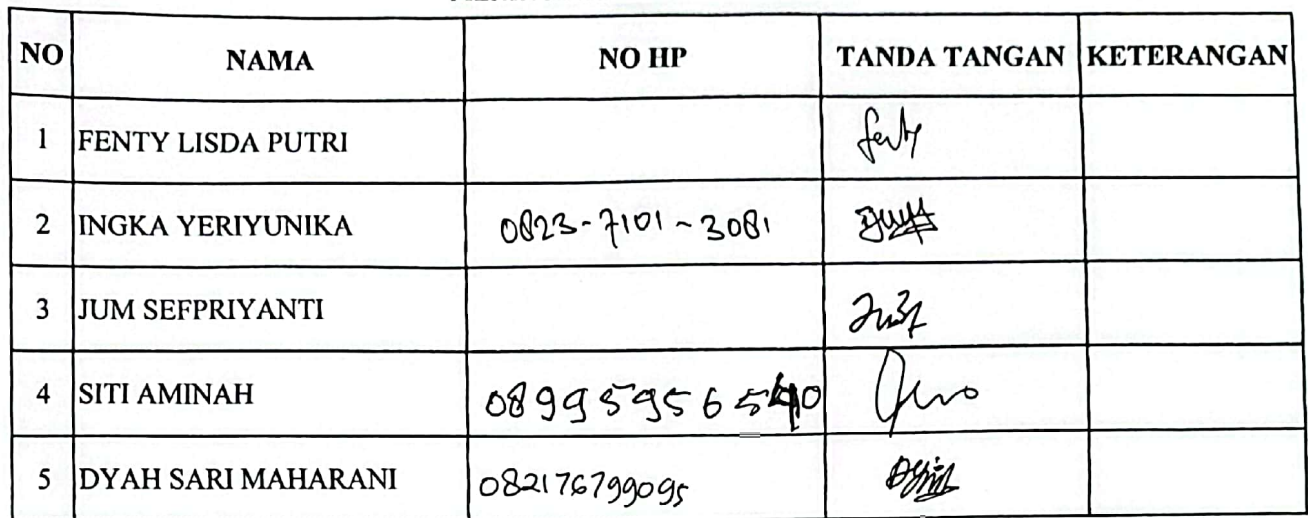 NO NAMA NO HP TANDA TANGAN KETERANGAN
1 FENTY LISDA PUTRI Fenty
2 INGKA YERIYUNIKA 0823-7101-3081
3 JUM SEFPRIYANTI
4 SITI AMINAH
5 DYAH SARI MAHARANI 082176799095